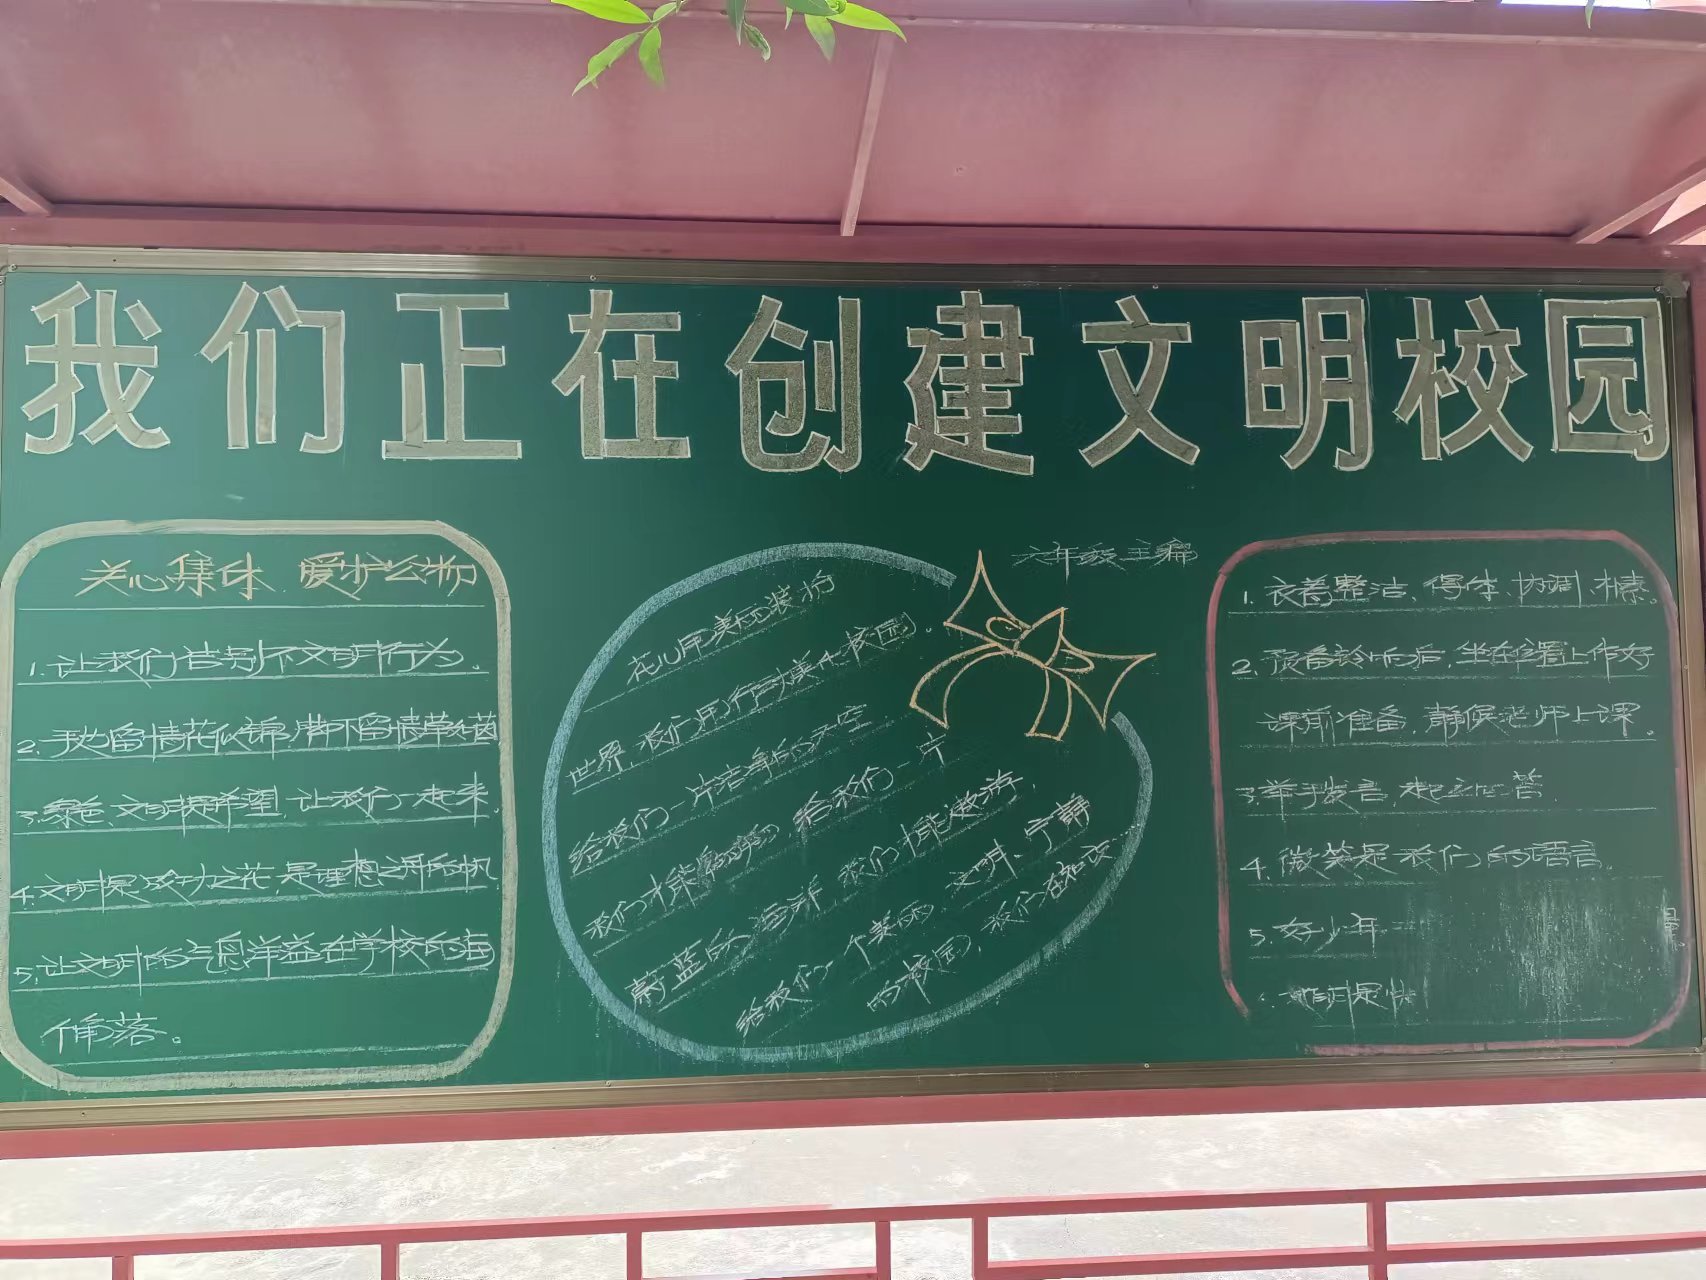 我们正在创建文明校园
关心集体 爱护公物
1.让我们告别不文明行为。
2.手边留情花似锦,脚下留情草如茵
3.绿色、文明是希望,让我们一起来。
4.文明是成功之花,是理想之舟的帆
5.让文明的气息洋益在学校的每
个角落。
六年级主编
花儿用美丽装扮
世界,我们用行动美化校园。
给我们一片洁净的天空
我们才能 给我们一片
蔚蓝的海洋,我们才能遨游,
给我们一个美丽、文明、宁静
的校园,我们
1.衣着整洁、得体、协调、朴素。
2.预备铃响后,坐在位置上作好
课前准备,静候老师上课。
3.举手发言,起立回答。
4.微笑是我们的语言。
5.好少年